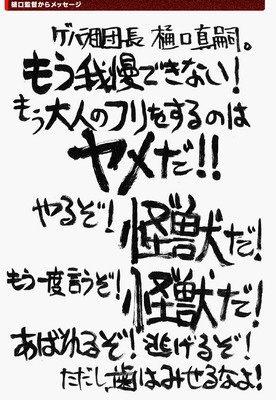 樋口監督からメッセージ
ゲハラ団団長 樋口真嗣。
もう我慢できない!
もう大人のフリをするのは
ヤメだ!!
やるぞ!怪獣だ!
もう一度言うぞ!怪獣だ!
あばれるぞ!逃げるぞ!
ただし、歯はみせるなよ!